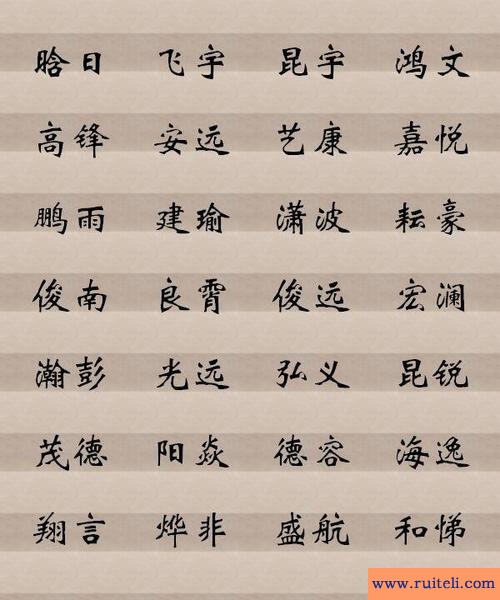 晗日 飞宇 昆宇 鸿文
高锋 安远 艺康 嘉悦
鹏雨 建瑜 潇波 耘豪
俊南 良霄 俊远 宏澜
瀚彭 光远 弘义 昆锐
茂德 阳焱 德容 海逸
翔言 烨非 盛航 和悌
www.ruiteli.com